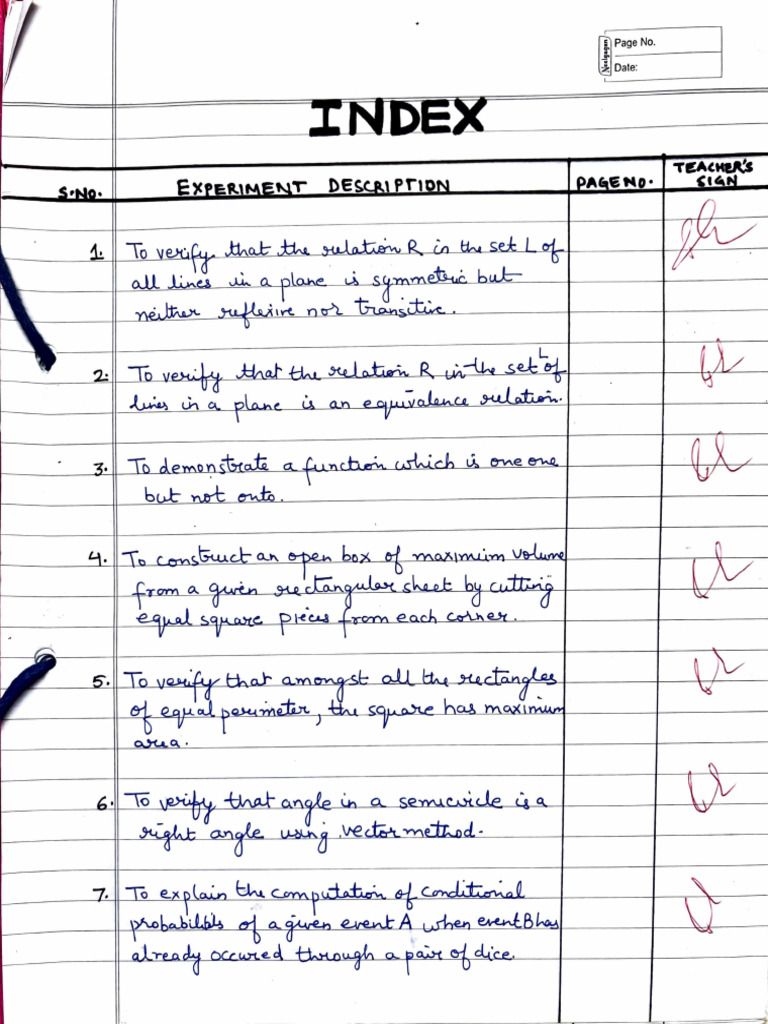 Neelgagan
Page No.
Date:
INDEX
S.No. EXPERIMENT DESCRIPTION PAGE NO. TEACHER'S SIGN
1. To verify that the relation R in the set L of
all lines in a plane is symmetric but
neither reflexive nor transitive.
2. To verify that the relation R in the set L of
lines in a plane is an equivalence relation.
3. To demonstrate a function which is one one
but not onto.
4. To construct an open box of maximum volume
from a given rectangular sheet by cutting
equal square pieces from each corner.
5. To verify that amongst all the rectangles
of equal perimeter, the square has maximum
area.
6. To verify that angle in a semicircle is a
right angle using vector method.
7. To explain the computation of conditional
of a given event A when event B has
already occured through a pair of dice.